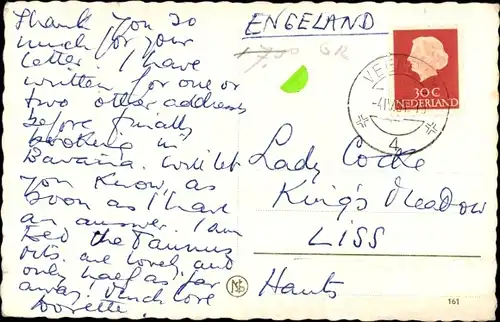 Thank you so
much for your
letter. I have
written for one or
two other addresses
before finally
booking in
Bavaria. Will let
you know, as
soon as I have
an answer. I am
the Taunus
are lovely and
only half as far
away! Much love
Dorette.
ENGELAND
30 C
NEDERLAND
4
Lady Cocke
King's Meadow
LISS
Hants
161